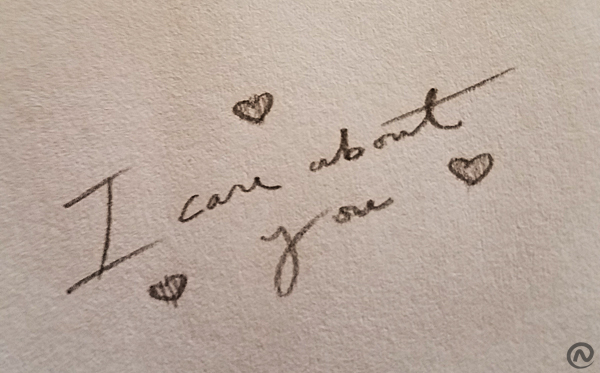 I care about
you